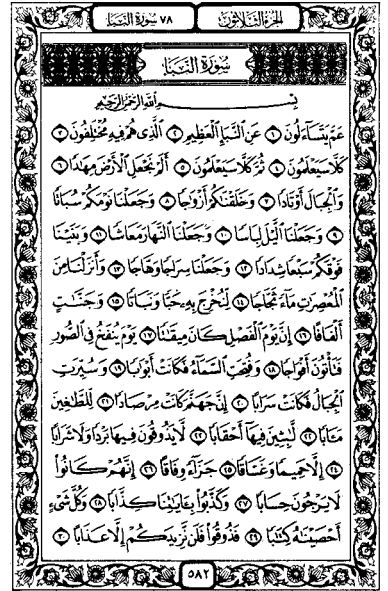 الجزء الثلاثون ٧٨ سورة النبإ
سورة النبإ
بسم الله الرحمن الرحيم
عَمَّ يَتَسَآءَلُونَ ١ عَنِ ٱلنَّبَإِ ٱلۡعَظِيمِ ٢ ٱلَّذِي هُمۡ فِيهِ مُخۡتَلِفُونَ ٣
كَلَّا سَيَعۡلَمُونَ ٤ ثُمَّ كَلَّا سَيَعۡلَمُونَ ٥ أَلَمۡ نَجۡعَلِ ٱلۡأَرۡضَ مِهَٰدٗا ٦
وَٱلۡجِبَالَ أَوۡتَادٗا ٧ وَخَلَقۡنَٰكُمۡ أَزۡوَٰجٗا ٨ وَجَعَلۡنَا نَوۡمَكُمۡ سُبَاتٗا
٩ وَجَعَلۡنَا ٱلَّيۡلَ لِبَاسٗا ١٠ وَجَعَلۡنَا ٱلنَّهَارَ مَعَاشٗا ١١ وَبَنَيۡنَا
فَوۡقَكُمۡ سَبۡعٗا شِدَادٗا ١٢ وَجَعَلۡنَا سِرَاجٗا وَهَّاجٗا ١٣ وَأَنزَلۡنَا مِنَ
ٱلۡمُعۡصِرَٰتِ مَآءٗ ثَجَّاجٗا ١٤ لِّنُخۡرِجَ بِهِۦ حَبّٗا وَنَبَاتٗا ١٥ وَجَنَّٰتٍ
أَلۡفَافًا ١٦ إِنَّ يَوۡمَ ٱلۡفَصۡلِ كَانَ مِيقَٰتٗا ١٧ يَوۡمَ يُنفَخُ فِي ٱلصُّورِ
فَتَأۡتُونَ أَفۡوَاجٗا ١٨ وَفُتِحَتِ ٱلسَّمَآءُ فَكَانَتۡ أَبۡوَٰبٗا ١٩ وَسُيِّرَتِ
ٱلۡجِبَالُ فَكَانَتۡ سَرَابًا ٢٠ إِنَّ جَهَنَّمَ كَانَتۡ مِرۡصَادٗا ٢١ لِّلطَّٰغِينَ
مَـَٔابٗا ٢٢ لَّٰبِثِينَ فِيهَآ أَحۡقَابٗا ٢٣ لَّا يَذُوقُونَ فِيهَا بَرۡدٗا وَلَا شَرَابًا
٢٤ إِلَّا حَمِيمٗا وَغَسَّاقٗا ٢٥ جَزَآءٗ وِفَاقًا ٢٦ إِنَّهُمۡ كَانُواْ
لَا يَرۡجُونَ حِسَابٗا ٢٧ وَكَذَّبُواْ بِـَٔايَٰتِنَا كِذَّابٗا ٢٨ وَكُلَّ شَيۡءٍ
أَحۡصَيۡنَٰهُ كِتَٰبٗا ٢٩ فَذُوقُواْ فَلَن نَّزِيدَكُمۡ إِلَّا عَذَابًا ٣٠
٥٨٢